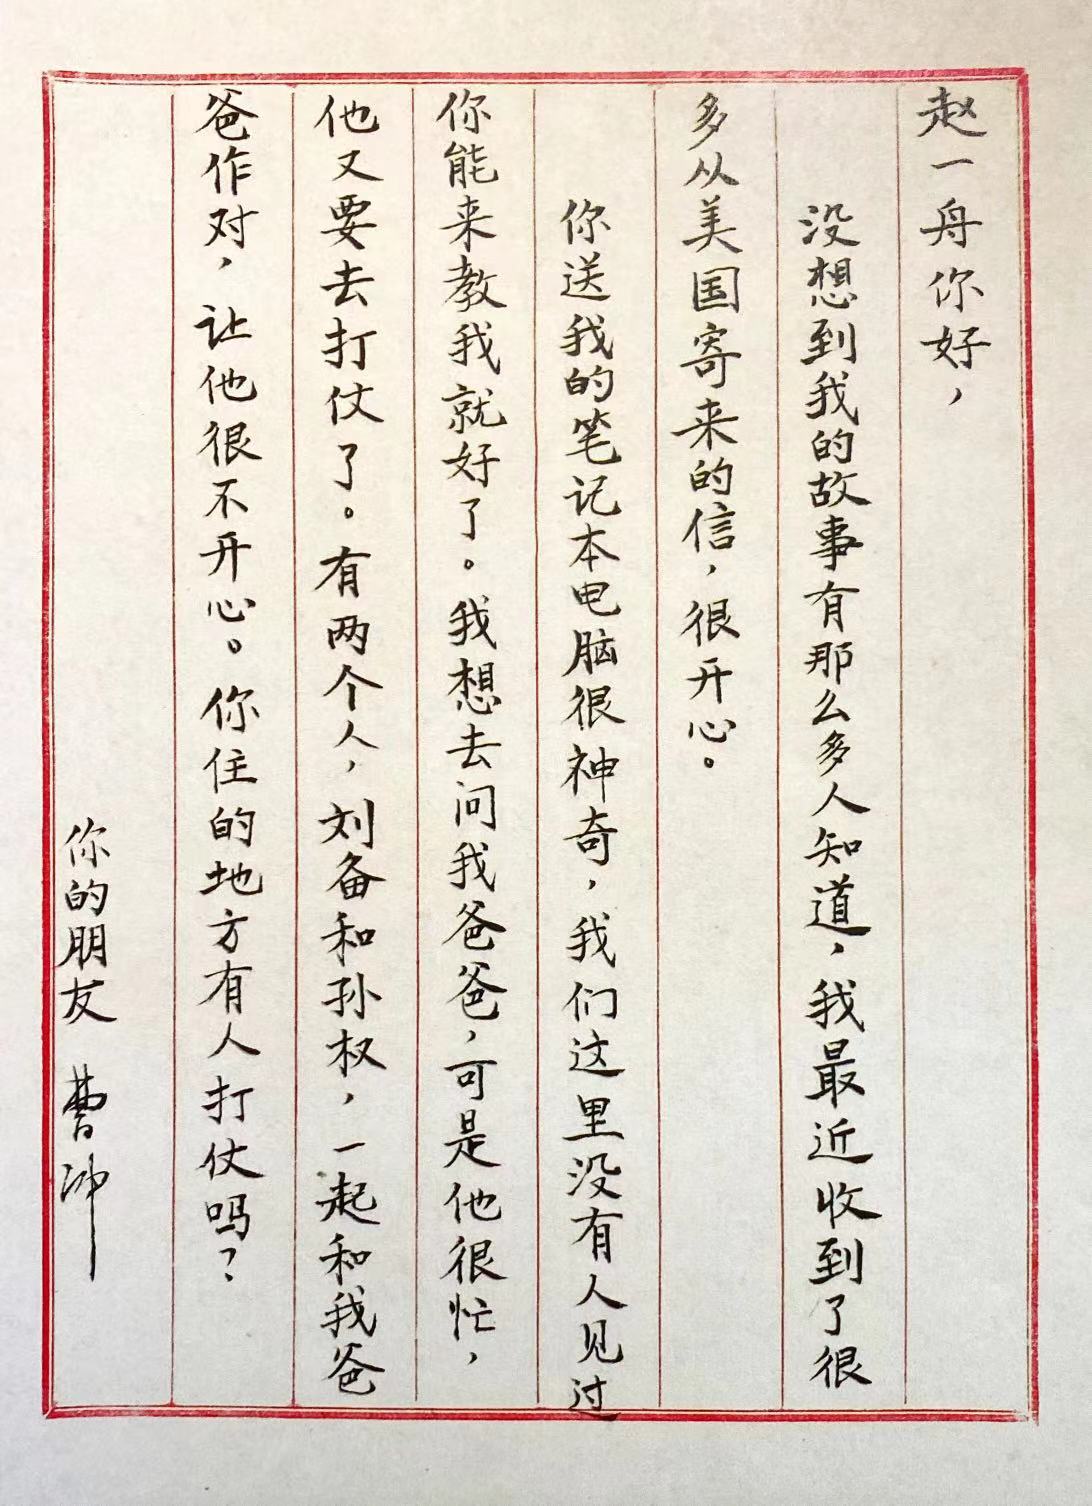 赵一舟你好，
没想到我的故事有那么多人知道，我最近收到了很
多从美国寄来的信，很开心。
你送我的笔记本电脑很神奇，我们这里没有人见过
你能来教我就好了。我想去问我爸爸，可是他很忙，
他又要去打仗了。有两个人，刘备和孙权，一起和我爸
爸作对，让他很不开心。你住的地方有人打仗吗？
你的朋友 曹冲